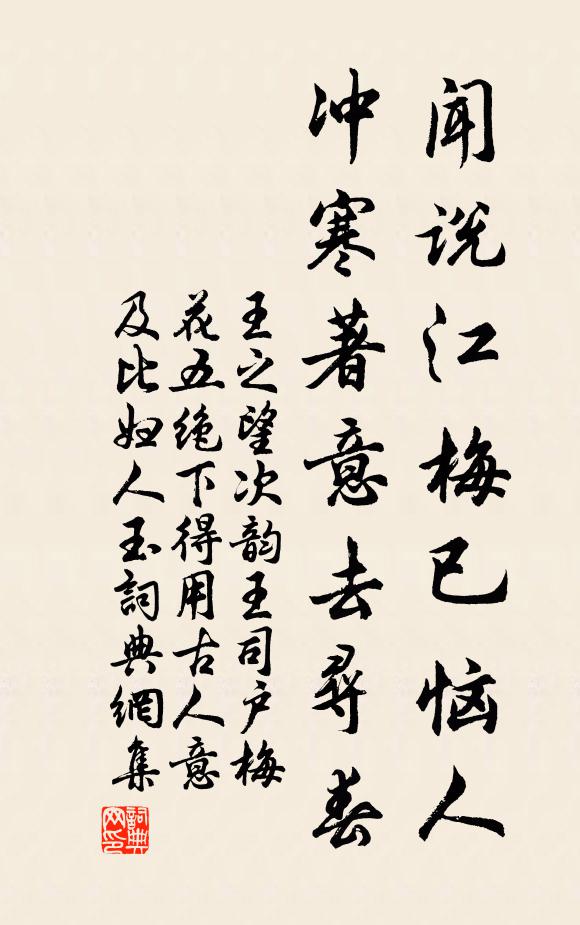 闻说江梅已恼人
冲寒著意去尋春
王之望次韵王司户梅
花五绝下得用古人意
及比妇人玉詞典網集
詞典网印